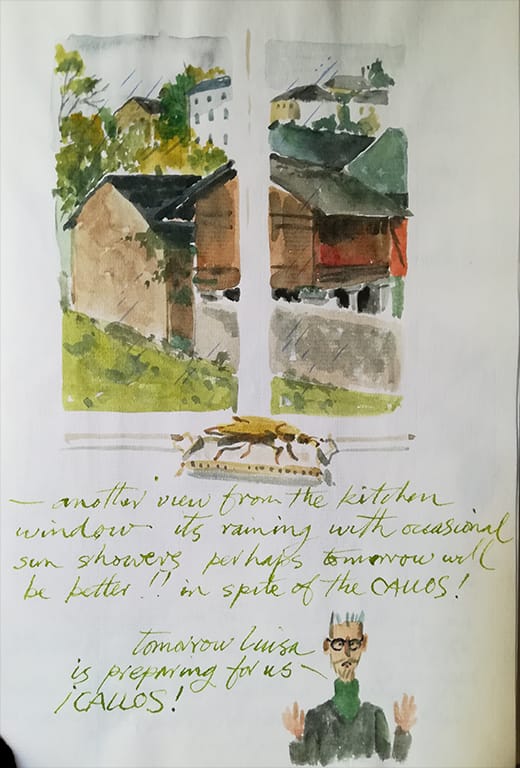 — another view from the kitchen
window its raining with occasional
sun showers perhaps tomorrow will
be better!! in spite of the CALLOS!
tomorrow Luisa
is preparing for us —
¡CALLOS!